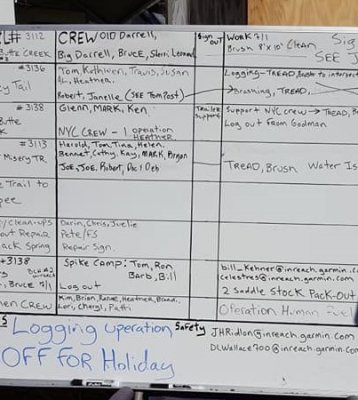 L# 3112 CREW Old Darrell, Sign out WORK 7/1 Sig
Butte CREEK Big Darrell, Bruce, Sherri Brush 8'x10' CLEAN SEE J
#3136 Tom, Kathleen, Travis, Susan Logging - TREAD,
y Tail AL, Heather.
Robert, Janelle (SEE Tom Post) Brushing, TREAD,
#3138 Glenn, MARK, Ken Trailer Support Support NYC crew → TREAD,
Butte Log out From Godman
NYC CREW - 1 operation HEATHER
#3113 Harold, Tom, Tina, Helen,
Misery TR Bennet, Cathy, Kay, MARK, TREAD, Brush Water
Joe, Joe, Robert, Deb
Trail to
pee
/Clean-ups Darin, Chris, Juelie
out Repair Pete/FS
ack Spring Repair Sign.
#3138 Spike Camp: Tom, Ron bill_Kehner@inreach.garmin.c
Bruce Barb, Bill celestres@inreach.garmin.co
Log out 2 Saddle Stock Pack-Out
men CREW Kim, Brian, Heather,
Lori, Cheryl, Patti Operation Human
Logging operation Safety JHRidlon@inreach.garmin.com
OFF FOR Holiday DLWallace700@inreach.garmin.com